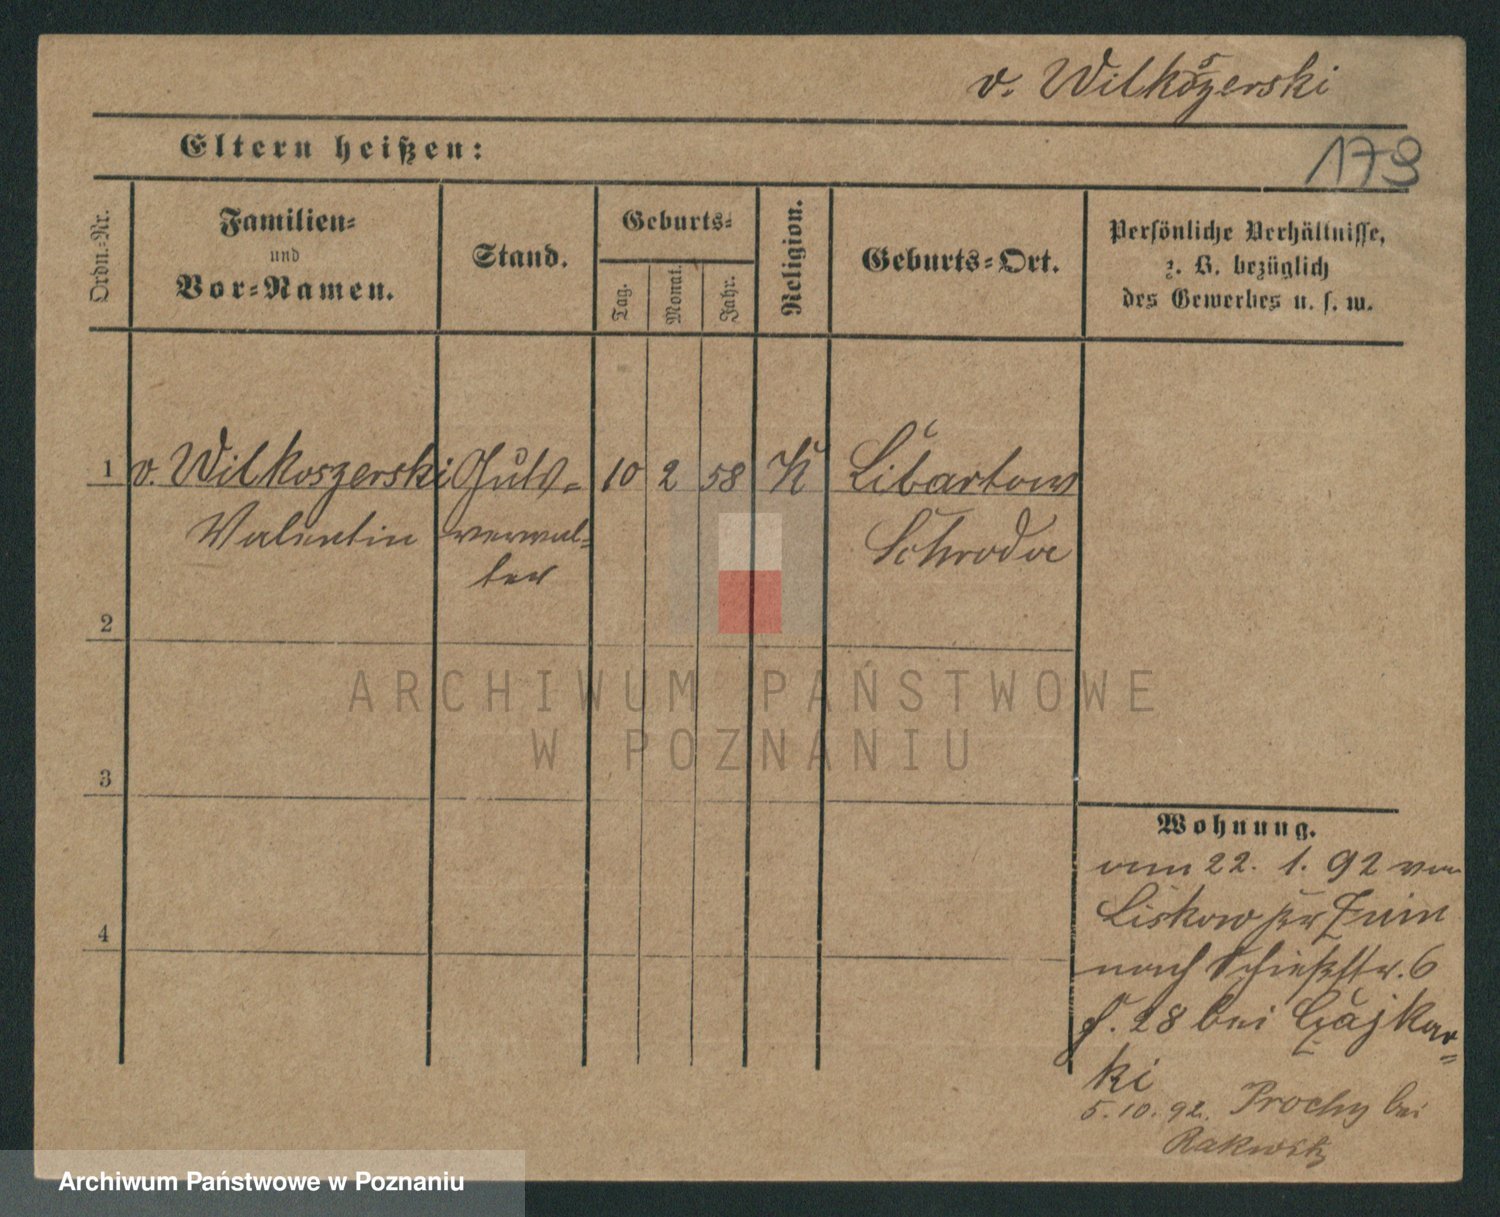 v. Wilkoszerski
Eltern heißen:
179
Ordn.-Nr.
Familien-
und
Vor-Namen.
Stand.
Geburts-
Tag.
Monat.
Jahr.
Religion.
Geburts-Ort.
Persönliche Verhältnisse,
z. B. bezüglich
des Gewerbes u. s. w.
1 v. Wilkoszerski Guts- 10 2 58 K Libartowo
Valentin verwal- Schroda
ter
2
3
4
Wohnung.
vom 22. 1. 92 von
Liskowo per Znin
nach Schießstr. 6
f. 28 bei
ki
5.10.92. Prochy bei
Rakwitz
ARCHIWUM PAŃSTWOWE
W POZNANIU
Archiwum Państwowe w Poznaniu